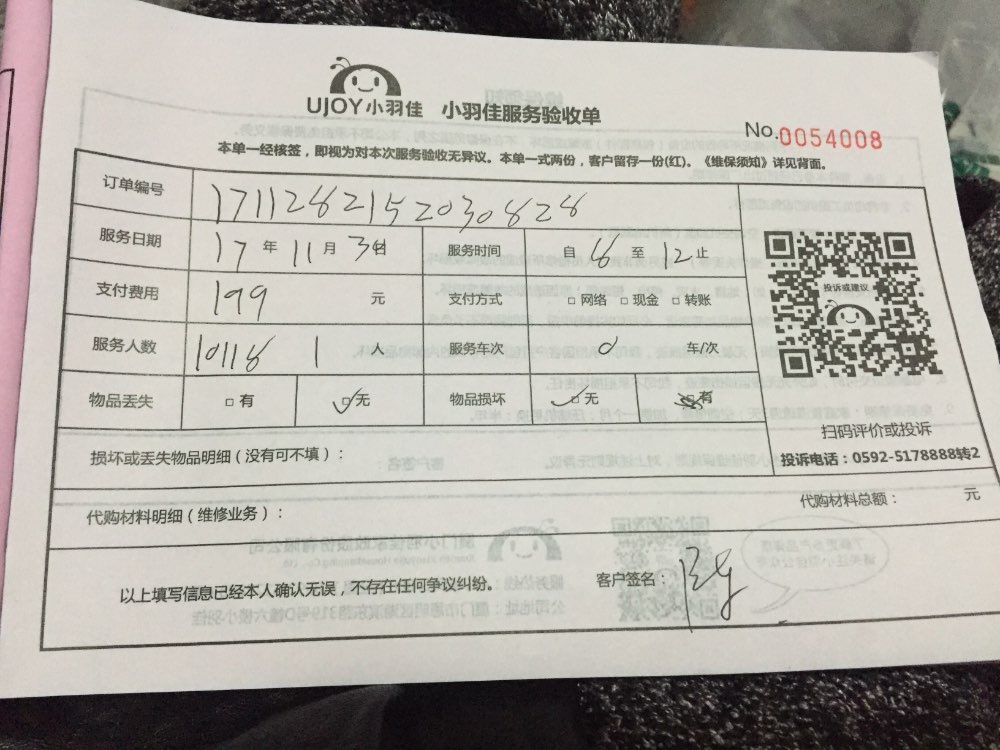 UJOY小羽佳 小羽佳服务验收单
No.0054008
本单一经核签，即视为对本次服务验收无异议。本单一式两份，客户留存一份(红)。《维保须知》详见背面。
订单编号 1711282152030828
服务日期 17 年 11 月 30日 服务时间 自 8 至 12 止
支付费用 199 元 支付方式 □ 网络 □ 现金 □ 转账
服务人数 10118 1 人 服务车次 0 车/次
物品丢失 □ 有 □ 无 物品损坏 □ 无 □ 有
投诉或建议
扫码评价或投诉
投诉电话：0592-5178888转2
损坏或丢失物品明细（没有可不填）：
代购材料明细（维修业务）： 代购材料总额： 元
以上填写信息已经本人确认无误，不存在任何争议纠纷。 客户签名：